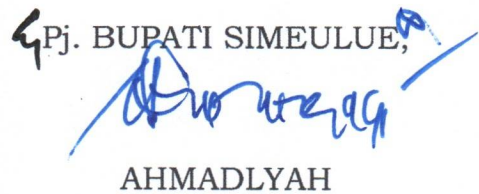 Pj. BUPATI SIMEULUE,
AHMADLYAH